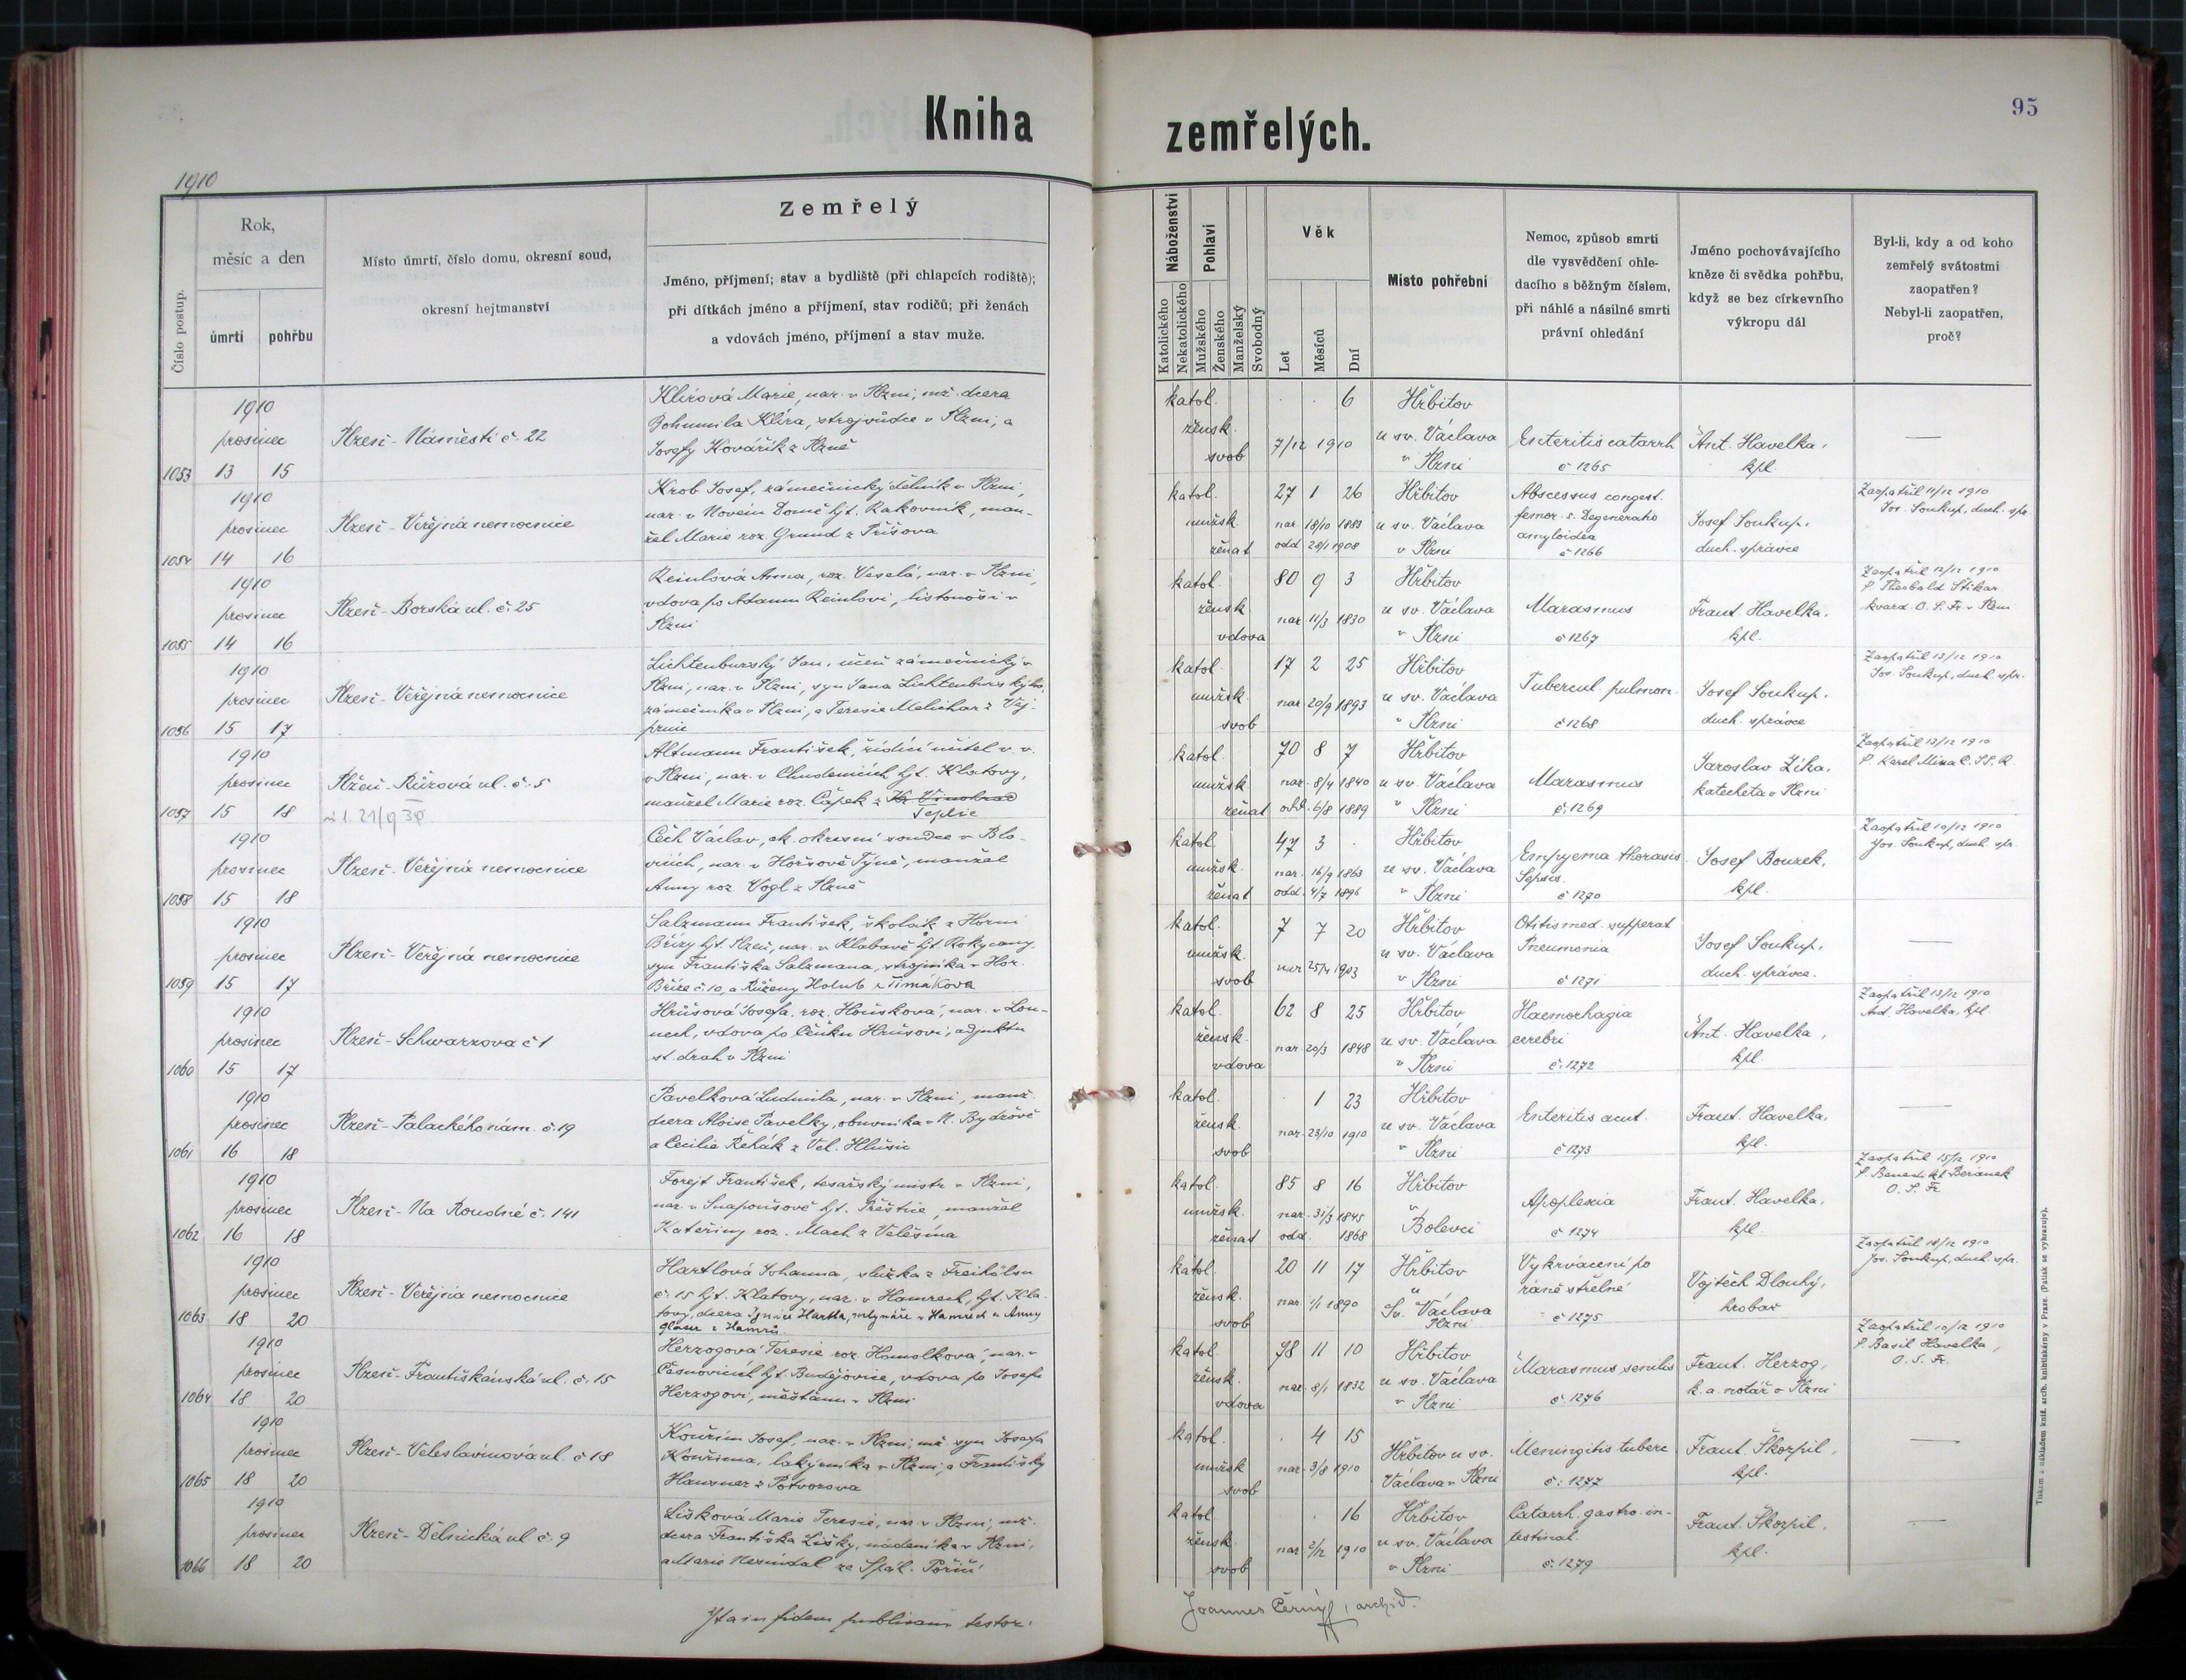 Kniha
zemřelých.
95
1910
Číslo postup.
Rok,
měsíc a den
úmrtí
pohřbu
Místo úmrtí, číslo domu, okresní soud,
okresní hejtmanství
Zemřelý
Jméno, příjmení; stav a bydliště (při chlapcích rodiště);
při dítkách jméno a příjmení, stav rodičů; při ženách
a vdovách jméno, příjmení a stav muže.
Náboženství
Katolického
Nekatolického
Pohlaví
Mužského
Ženského
Manželský
Svobodný
Věk
Let
Měsíců
Dní
Místo pohřební
Nemoc, způsob smrti
dle vysvědčení ohle-
dacího s běžným číslem,
při náhlé a násilné smrti
právní ohledání
Jméno pochovávajícího
kněze či svědka pohřbu,
když se bez církevního
výkropu dál
Byl-li, kdy a od koho
zemřelý svátostmi
zaopatřen?
Nebyl-li zaopatřen,
proč?
1053
1910
prosinec
13 15
Plzeň - Náměstí č. 22
Klírová Marie, nar. v Plzni, mž. dcera
Bohumila Klíra, strojvůdce v Plzni, a
Josefy Kovářík z Plzně
katol.
žensk.
svob
. . 6
7/12 1910
Hřbitov
u sv. Václava
v Plzni
Enteritis catarrh
č 1265
Ant. Havelka,
kpl.
—
1054
1910
prosinec
14 16
Plzeň - Veřejná nemocnice
Krob Josef, zámečnický dělník v Plzni,
nar. v Novém Domě hjt. Rakovník, man-
žel Marie roz. Grund z Příšova
katol.
mužsk.
ženat
27 1 26
nar. 18/10 1883
odd 28/1 1908
Hřbitov
u sv. Václava
v Plzni
Abscessus congest.
femor. s. Degeneratio
amyloidea
č 1266
Josef Soukup,
duch. správce
Zaopatřil 11/12 1910
Jos. Soukup, duch. spr.
1055
1910
prosinec
14 16
Plzeň - Borská ul. č. 25
Reinlová Anna, roz. Veselá, nar. v Plzni,
vdova po Adamu Reinlovi, listonoši v
Plzni
katol.
žensk.
vdova
80 9 3
nar. 11/3 1830
Hřbitov
u sv. Václava
v Plzni
Marasmus
č 1267
Frant. Havelka,
kpl.
Zaopatřil 12/12 1910
P. Theobald Stikar
kvard. O. S. Fr. v Plzni
1056
1910
prosinec
15 17
Plzeň - Veřejná nemocnice
Lichtenburský Jan, učeň zámečnický v
Plzni, nar. v Plzni, syn Jana Lichtenburského,
zámečníka v Plzni, a Teresie Melichar z Vej-
prnic
katol.
mužsk.
svob
17 2 25
nar 20/9 1893
Hřbitov
u sv. Václava
v Plzni
Tubercul. pulmon.
č 1268
Josef Soukup,
duch. správce
Zaopatřil 13/12 1910
Jos. Soukup, duch. spr.
1057
1910
prosinec
15 18
Plzeň - Růžová ul. č. 5
Altmann František, řídící učitel v. v.
v Plzni, nar. v Chudenicích hjt. Klatovy,
manžel Marie roz. Čápek z Kr. Vinohrad
Teplic
katol.
mužsk.
ženat
70 8 7
nar. 8/4 1840
odd. 6/8 1889
Hřbitov
u sv. Václava
v Plzni
Marasmus
č. 1269
Jaroslav Zíka,
katecheta v Plzni
Zaopatřil 12/12 1910
P. Karel Mina C. SS. R.
1058
1910
prosinec
15 18
Plzeň - Veřejná nemocnice
Čech Václav, ck. okresní soudce v Blo-
vicích, nar. v Horšově Týně, manžel
Anny roz. Vogl z Plzně
katol.
mužsk.
ženat
47 3 .
nar. 16/9 1863
odd. 4/7 1896
Hřbitov
u sv. Václava
v Plzni
Empyema thoracis.
Sepsis.
č 1270
Josef Bouzek,
kpl.
Zaopatřil 10/12 1910
Jos. Soukup, duch. spr.
1059
1910
prosinec
15 17
Plzeň - Veřejná nemocnice
Salzmann František, školák z Horní
Břízy hjt. Plzeň, nar. v Klabavě hjt. Rokycany,
syn Františka Salzmana, strojníka v Hor.
Bříze č. 10, a Růženy Holub z Timákova
katol.
mužsk.
svob
7 7 20
nar 25/4 1903
Hřbitov
u sv. Václava
v Plzni
Otitis med. suppurat
Pneumonia
č 1271
Josef Soukup,
duch. správce.
—
1060
1910
prosinec
15 17
Plzeň - Schwarzova č 1
Hrůšová Josefa, roz. Houšková, nar. v Lou-
nech, vdova po Čeňku Hrůšovi, adjunktu
st. drah v Plzni
katol.
žensk.
vdova
62 8 25
nar. 20/3 1848
Hřbitov
u sv. Václava
v Plzni
Haemorhagia
cerebri
č. 1272
Ant. Havelka,
kpl.
Zaopatřil 13/12 1910
Ant. Havelka, kpl.
1061
1910
prosinec
16 18
Plzeň - Palackého nám. č. 19
Pavelková Ludmila, nar. v Plzni, manž.
dcera Aloise Pavelky, obuvníka v N. Bydžově
a Cecilie Řehák z Vel. Hlušic
katol.
žensk.
svob
. 1 23
nar. 23/10 1910
Hřbitov
u sv. Václava
v Plzni
Enteritis acut.
č 1273
Frant. Havelka,
kpl.
—
1062
1910
prosinec
16 18
Plzeň - Na Roudné č. 141
Forejt František, tesařský mistr v Plzni,
nar. v Snapoušově hjt. Přeštice, manžel
Kateřiny roz. Mach z Velešína
katol.
mužsk.
ženat
85 8 16
nar. 31/3 1845
odd. 1868
Hřbitov
v
Bolevci
Apoplexia
č 1274
Frant. Havelka,
kpl.
Zaopatřil 15/12 1910
P. Benedikt Beránek
O. S. Fr.
1063
1910
prosinec
18 20
Plzeň - Veřejná nemocnice
Hartlová Johanna, služka z Freihölsu
č. 15 hjt. Klatovy, nar. v Hamrech, hjt. Kla-
tovy, dcera Ignáce Hartla, mlynáře v Hamrech a Anny
Glaser z Hamrů.
katol.
žensk.
svob
20 11 17
nar. 1/1 1890
Hřbitov
u
Sv. Václava
Plzni
Vykrvácení po
ráně střelné
č 1275
Vojtěch Dlouhý,
hrobař
Zaopatřil 18/12 1910
Jos. Soukup, duch. spr.
1064
1910
prosinec
18 20
Plzeň - Františkánská ul. č. 15
Herzogová Teresie roz. Homolková, nar. v
Česnovicích hjt. Budějovice, vdova po Josefu
Herzogovi, měšťanu v Plzni
katol.
žensk.
vdova
78 11 10
nar. 8/1 1832
Hřbitov
u sv. Václava
v Plzni
Marasmus senilis
č 1276
Frant. Herzog,
k. a. notář v Plzni
Zaopatřil 10/12 1910
P. Basil Havelka,
O. S. Fr.
1065
1910
prosinec
18 20
Plzeň - Veleslavínova ul. č 18
Kouřim Josef, nar. v Plzni, mž. syn Josefa
Kouřima, lakýrníka v Plzni, a Františky
Hausner z Potvorova
katol.
mužsk
svob
. 4 15
nar. 3/8 1910
Hřbitov u sv.
Václava v Plzni
Meningitis tuberc
č: 1277
Frant. Škorpil,
kpl.
—
1066
1910
prosinec
18 20
Plzeň - Dělnická ul č. 9
Lišková Marie Teresie, nar. v Plzni, mž.
dcera Františka Lišky, nádeníka v Plzni,
a Marie Nesnídal ze Spál. Poříčí
katol
žensk.
svob
. . 16
nar 2/12 1910
Hřbitov
u sv. Václava
v Plzni
Catarrh. gastro-in-
testinal.
č. 1279
Frant. Škorpil,
kpl.
—
Ita in fidem publicam testor:
Joannes Černý, archid.
Tiskem a nákladem kníž. arcib. knihtiskárny v Praze. (Patisk se vyhrazuje).